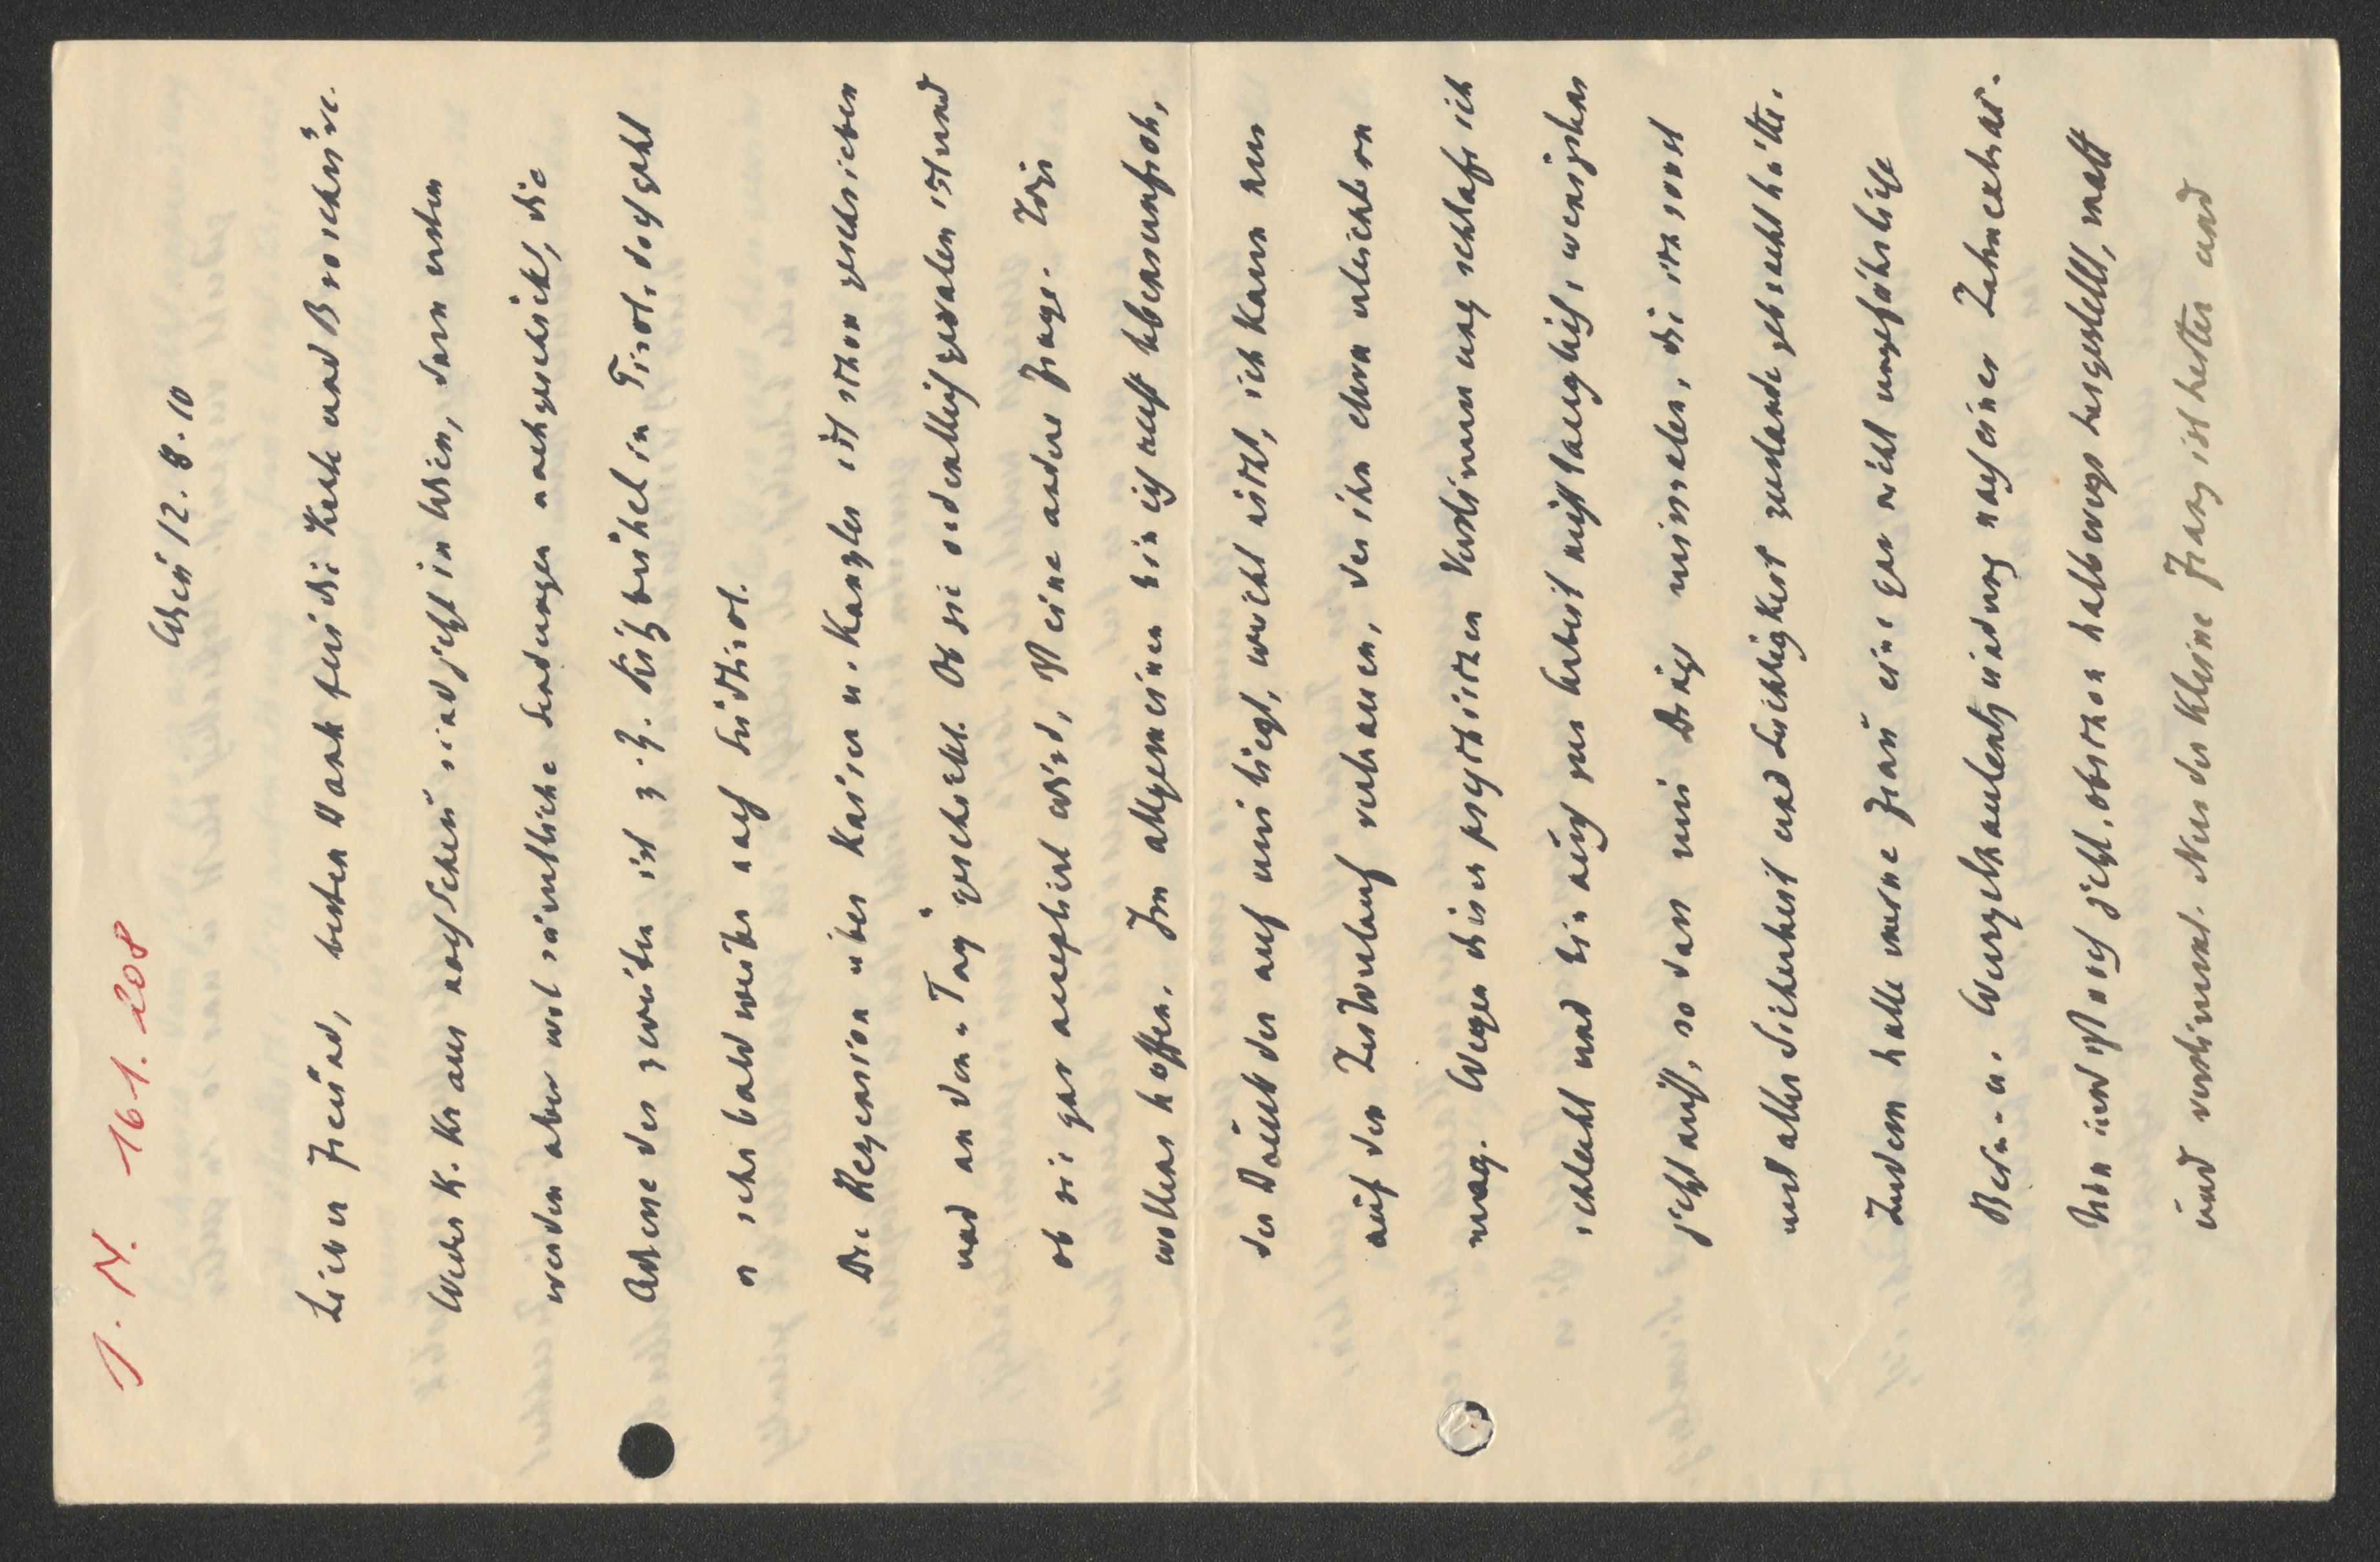 J. N. 161.208
Wien 12.8.10
Lieber Freund, besten Dank für die Karte und Broschüre.
Weder K. Kraus noch Scheu sind jetzt in Wien, dem ersten
werden aber wol sämtliche Sendungen nachgeschickt, die
Adresse des zweiten ist z. Z. Kitzbühel in Tirol, doch geht
er sehr bald weiter nach Südtirol.
Die Rezension über Kaiser u. Kanzler ist schon geschrieben
und an den „Tag" geschickt. Ob sie ordentlich geraten ist und
ob sie gar acceptirt wird, ist eine andere Frage. Wir
wollens hoffen. Im allgemeinen bin ich recht lebensunfroh,
der Druck der auf mir liegt, weicht nicht, ich kann nur
auf den Zeitverlauf vertrauen, der ihn etwa erleichtern
mag. Wegen dieser psychischen Verstimmung schlafe ich
schlecht und bin auch zur Arbeit nicht tauglich, wenigstens
jetzt nicht, so dass mir Dinge misraten, die ich sonst
mit aller Sicherheit und Leichtigkeit zustande gebracht hätte.
Zudem hatte meine Frau eine gar nicht ungefährliche
Bein- u. Wurzelhautentzündung nach einer Zahnextrak.
tion und ist noch jetzt, obschon halbwegs hergestellt, matt
und verstimmt. Nur der kleine Franz ist heiter und